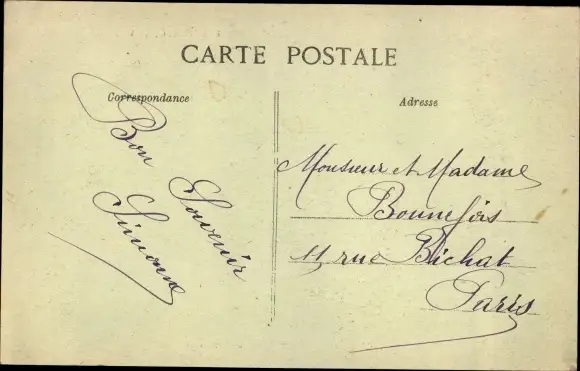 CARTE POSTALE
Correspondance
Bon
Souvenir
Simonne
Adresse
Monsieur et Madame
Bonnefois
11 rue Bichat
Paris